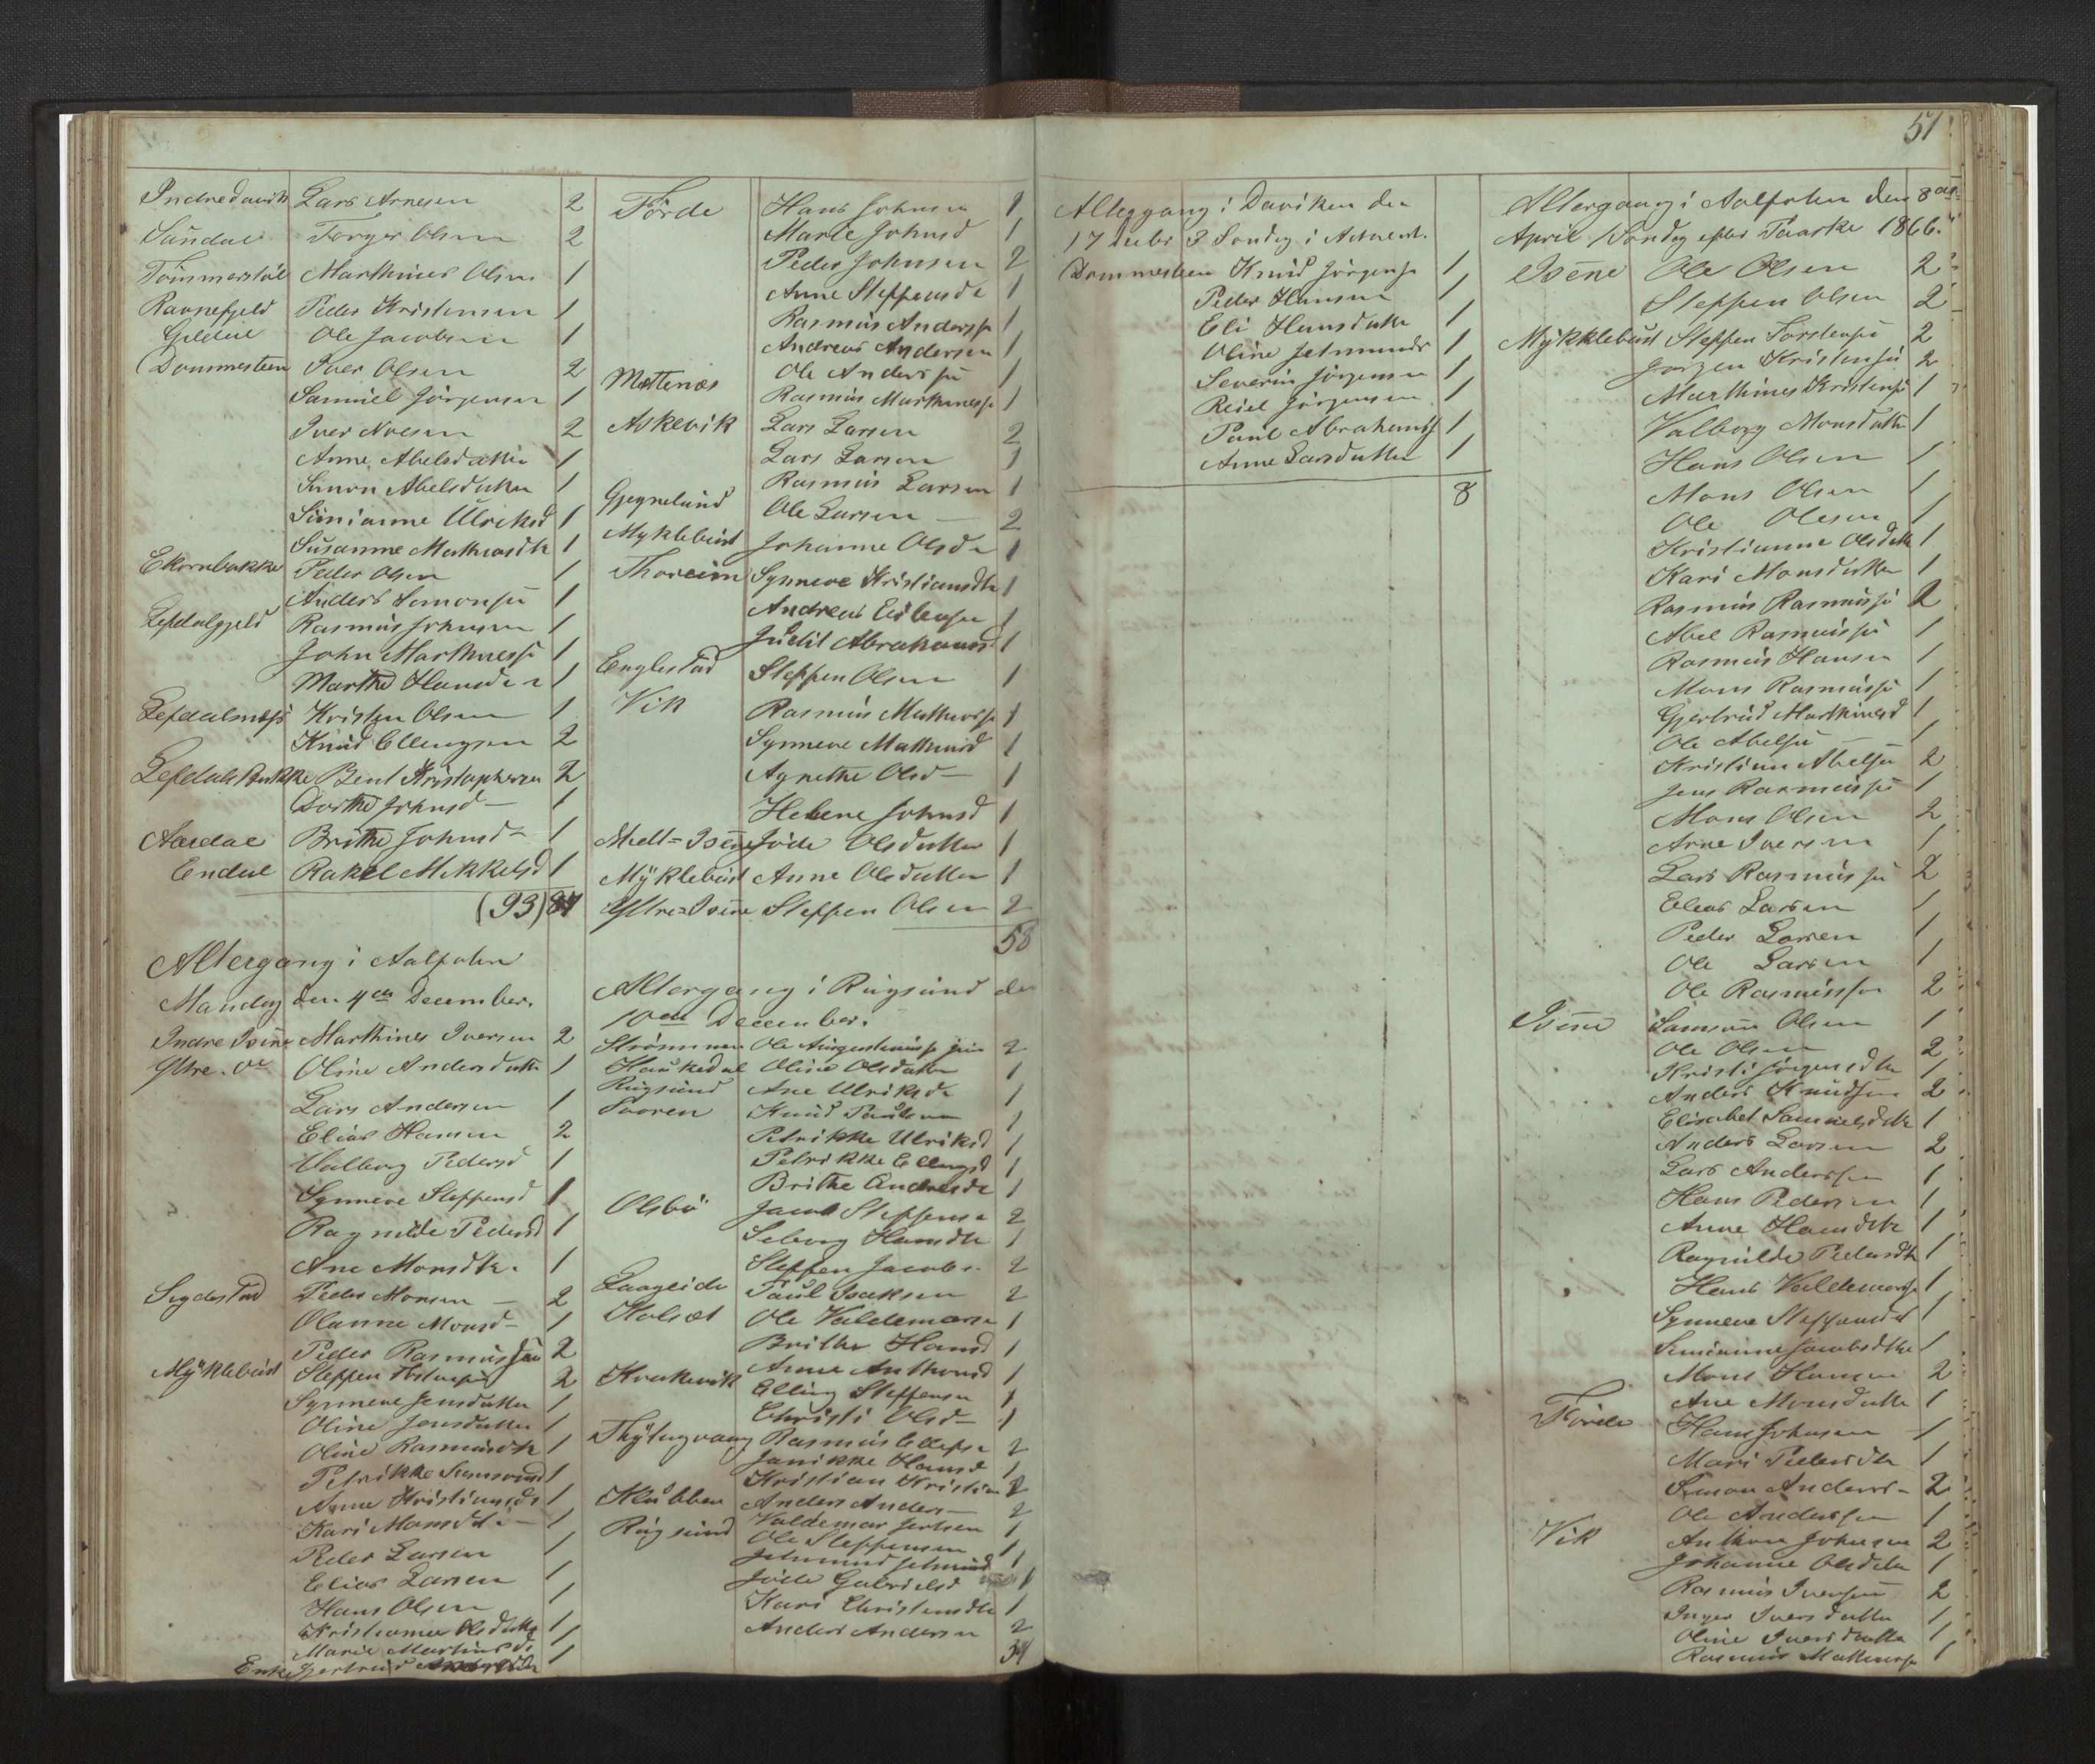 51
Indredavik Lars Arnesen 2
Sandal Torger Olsen 2
Tömmerstöl Marthines Olsen 1
Ravnefjeld Peder Kristensen 1
Gildeil Ole Jacobsen 1
Dommesteen Iver Olsen 2
Samuel Jörgensen 1
Iver Nilsen 2
Anne Abelsdatter 1
Simon Abelsdatter 1
Simianne Ulriksd 1
Susanne Mathiasdtr 1
Ekornbakke Peder Olsen 1
Anders Simonsen 1
Lefdalgjeld Rasmus Johnsen 1
John Marthiness 1
Marthe Hansd 1
Lefdalnæss Kristen Olsen 1
Knud Ellingsen 2
Lefdals Bakke Bent Kristophersen 2
Dorthe Johnsd 1
Aardal Brithe Johnsd 1
Endal Rakel Mikkelsd 1
(93) 84
Altergang i Aalfoten
Mandag den 4de December.
Indre Isene Marthines Iversen 2
Yttre do Oline Andersdatter 1
Lars Andersen 1
Elias Hansen 2
Valborg Pedersd 1
Synneve Steffensd 1
Ragnilde Pedersd 1
Ane Monsdtr 1
Sigdestad Peder Monsen 2
Olanne Monsd 1
Peder Rasmussen 2
Myklebust Steffen Torstensen 2
Synneve Jensdatter 1
Oline Jensdatter 1
Oline Rasmusdtr 1
Petrikke Simonsd 1
Anne Kristiansd 1
Kari Monsdtr 1
Peder Larsen 1
Elias Larsen 1
Hans Olsen 1
Kristianne Olsdatter 1
Marie Martinsd 1
Enke Gjertrud
Förde Hans Johnsen 1
Marte Johnsd 1
Peder Johnsen 2
Anne Steffensd 1
Rasmus Anderss 1
Andreas Andersen 1
Ole Anderssen 1
Mættenæs Rasmus Marthiness 1
Askevik Lars Larsen 2
Lars Larsen 1
Rasmus Larsen 1
Gjegnelund Ole Larsen 2
Myklebust Johanne Olsd 1
Thoreim Synneve Kristiansdtr 1
Andreas 1
Judit Abrahamsd 1
Englestad Steffen Olsen 1
Vik Rasmus Mathiass 1
Synneve Mathiasd 1
Agnethe Olsd 1
Helene Johnsd 1
Midt=Isene Jöde Olsdatter 1
Myklebust Anne Olsdatter 1
Yttre=Isene Steffen Olsen 2
58
Altergang i Rugsund den
10de December.
Strömmen Ole 2
Haukedal Oline Olsdatter 1
Rugsund Ane Ulriksd 1
Taaren Knud Paulsen 1
Petrikke Ulriksd 1
Petrikke Ellingsd 1
Brithe Andresd 1
Olsbö Jacob Steffens 2
Seberg Hansdtr 1
Steffen Jacobs. 2
Laageide Paul Isaksen 2
Kolset Ole Valdemarsen 1
Brithe Hansd 1
Anne Anthonsd 1
Krakevik Elling Steffensen 1
Christi Olsd 1
Thytingvaag Rasmus 2
Janikke Hansd 1
Kristian Kristian 2
Klubben Anders Anders 2
Rugsund Valdemar Jertsen 1
Ole Steffensen 1
Jetmund Jetmund 1
Jöde Gabrielsd 1
Kari Christensdtr 1
Anders Andersen 2
34
Altergang i Daviken den
17 Decbr 3 Söndag i Advent.
Dommesteen Knud Jörgens 1
Peder Hansen 1
Eli Hansdatter 1
Oline Jetmunds 1
Severin Jörgensen 1
Reiel Jörgensen 1
Paul Abrahamss 1
Anne Larsdatter 1
8
Altergang i Aalfoten den 8de
April 1 Söndag efter Paaske 1866.
Isene Ole Olsen 2
Steffen Olsen 2
Mykklebust Steffen Torstensen 2
Jörgen Kristensen 2
Marthines Kristensen 1
Valborg Monsdatter 1
Hans Olsen 1
Mons Olsen 1
Ole Olesen 1
Kristianne Olsdatter 1
Kari Monsdatter 1
Rasmus Rasmussen 2
Abel Rasmussen 1
Rasmus Hansen 1
Mons Rasmussen 1
Gjertrud Marthinesd 1
Ole Abelsen 1
Kristian Abelsen 2
Jens Rasmussen 1
Mons Olsen 2
Arne Iversen 1
Lars Rasmussen 2
Elias Larsen 1
Peder Larsen 1
Ole Larsen 1
Ole Rasmussen 2
Isene Samson Olsen 1
Ole Olsen 2
Kristi Jörgensdtr 1
Anders Knudsen 2
Elisabet Samuelsdtr 1
Anders Larsen 2
Lars Anderssen 1
Hans Pedersen 1
Anne Hansdtr 1
Ragnilde Pedersdtr 1
Hans Valdemars 1
Synneve Steffensdtr 1
Simianne Jacobsdtr 1
Mons Hansen 2
Ane Monsdatter 1
Förde Hans Johnsen 1
Mari Pedersdtr 1
Simon Anders 2
Ole Anderssen 1
Vik Anthon Johnsen 2
Johanne Olsdtr 1
Rasmus Iversen 2
Inger Iversdatter 1
Oline Iversdatter 1
Rasmus Mathiass 1